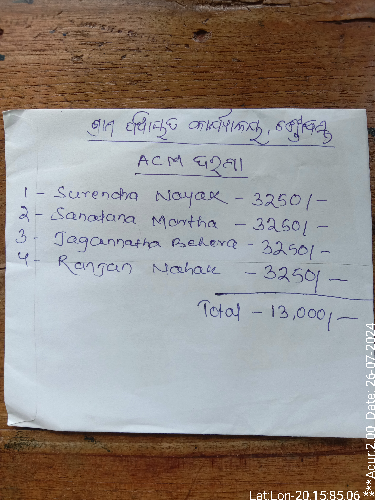 ଗ୍ରାମ ପଞ୍ଚାୟତ କାର୍ଯ୍ୟାଳୟ,
ACM ଘରଣା
1 - Surendra Nayak - 3250/-
2 - Sanatana Martha - 3250/-
3 - Jagannatha Behera - 3250/-
4 - Ranjan Nahak - 3250/-
Total - 13,000/-
Lat:Lon-20.15:85.06 ***Acur:2.00 Date: 26-07-2024